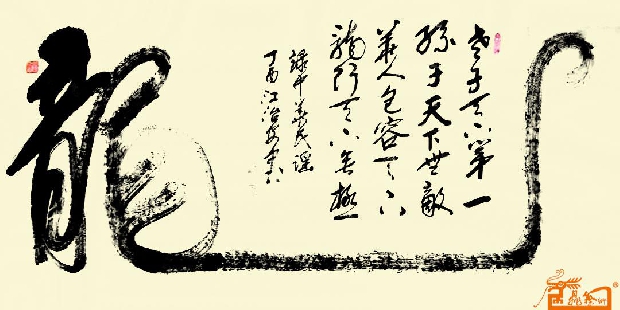 龍
老子天下第一
孫子天下無敵
華人包容天下
龍行天下無極
錄中華民謠
丁酉江治安書